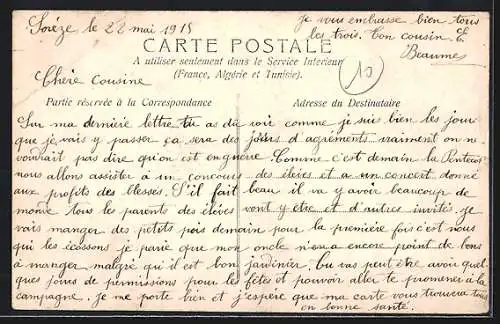 Sorèze le 22 mai 1915
je vous embrasse bien tous
les trois. Ton cousin E.
Beaumes
CARTE POSTALE
A utiliser seulement dans le Service Intérieur
(France, Algérie et Tunisie).
10
Chère Cousine
Partie réservée à la Correspondance
Adresse du Destinataire
Sur ma dernière lettre tu as dû voir comme je suis bien les jours
que je vais y passer ça sera des jours d'agréments vraiment on ne
voudrait pas dire qu'on est en guerre. Comme c'est demain la Pentecôte
nous allons assister à un concours des élèves et a un concert donné
aux profits des blessés. S'il fait beau il va y avoir beaucoup de
monde tous les parents des élèves vont y être et d'autres invités. Je
vais manger des petits pois demain pour la première fois c'est nous
qui les écossons je parie que mon oncle n'en a encore point de bons
à manger malgré qu'il est bon jardinier. Tu vas peut être avoir quel
ques jours de permissions pour les fêtes et pouvoir aller te promener à la
campagne. je me porte bien et j'espère que ma carte vous trouvera tous
en bonne santé.